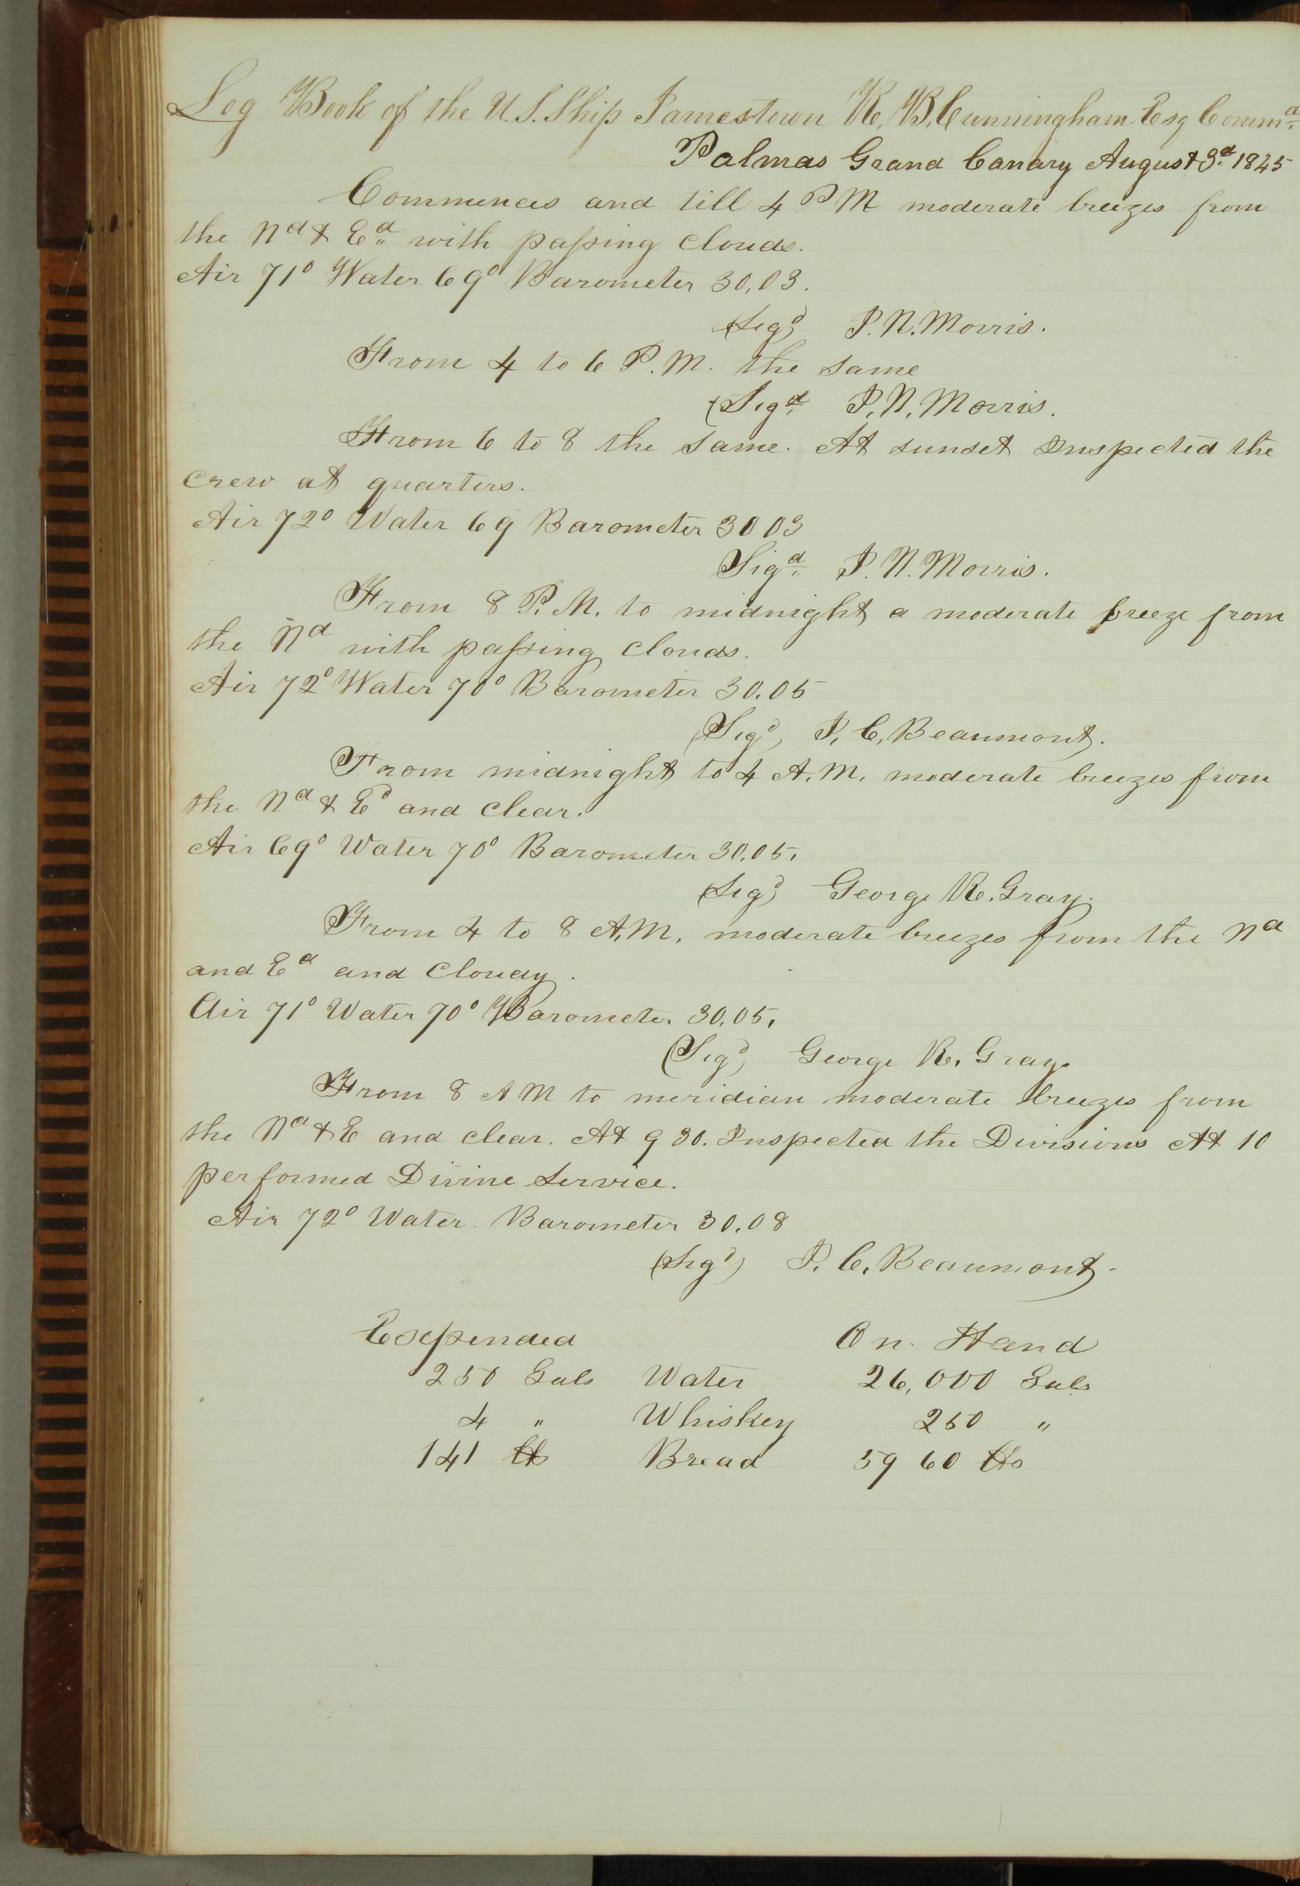 Log Book of the U.S. Ship Jamestown R. B. Cunningham Esq Commd.
Palmas Grand Canary August 3d. 1845
Commences and till 4 PM moderate breezes from
the Nd & Ed with passing clouds.
Air 71° Water 69° Barometer 30,03.
(Sigd) J. N. Morris.
From 4 to 6 P.M. the same
(Sigd. J. N. Morris.
From 6 to 8 the same. At sunset Inspected the
crew at quarters.
Air 72° Water 69 Barometer 30 03
Sigd. J. N. Morris.
From 8 P.M. to midnight a moderate breeze from
the Nd with passing clouds.
Air 72° Water 70° Barometer 30.05
(Sigd) J. C. Beaumont.
From midnight to 4 A.M. moderate breezes from
the Nd & Ed and clear.
Air 69° Water 70° Barometer 30.05.
(Sigd) George R. Gray.
From 4 to 8 A.M. moderate breezes from the Nd
and Ed and cloudy.
Air 71° Water 70° Barometer 30.05.
(Sigd) George R. Gray.
From 8 AM to meridian moderate breezes from
the Nd & E and clear. At 9 30. Inspected the Divisions At 10
performed Divine Service.
Air 72° Water Barometer 30.08
(Sigd) J. C. Beaumont.
Expended On Hand
250 Gals Water 26,000 Gals
4 " Whiskey 250 "
141 lbs Bread 59 60 lbs